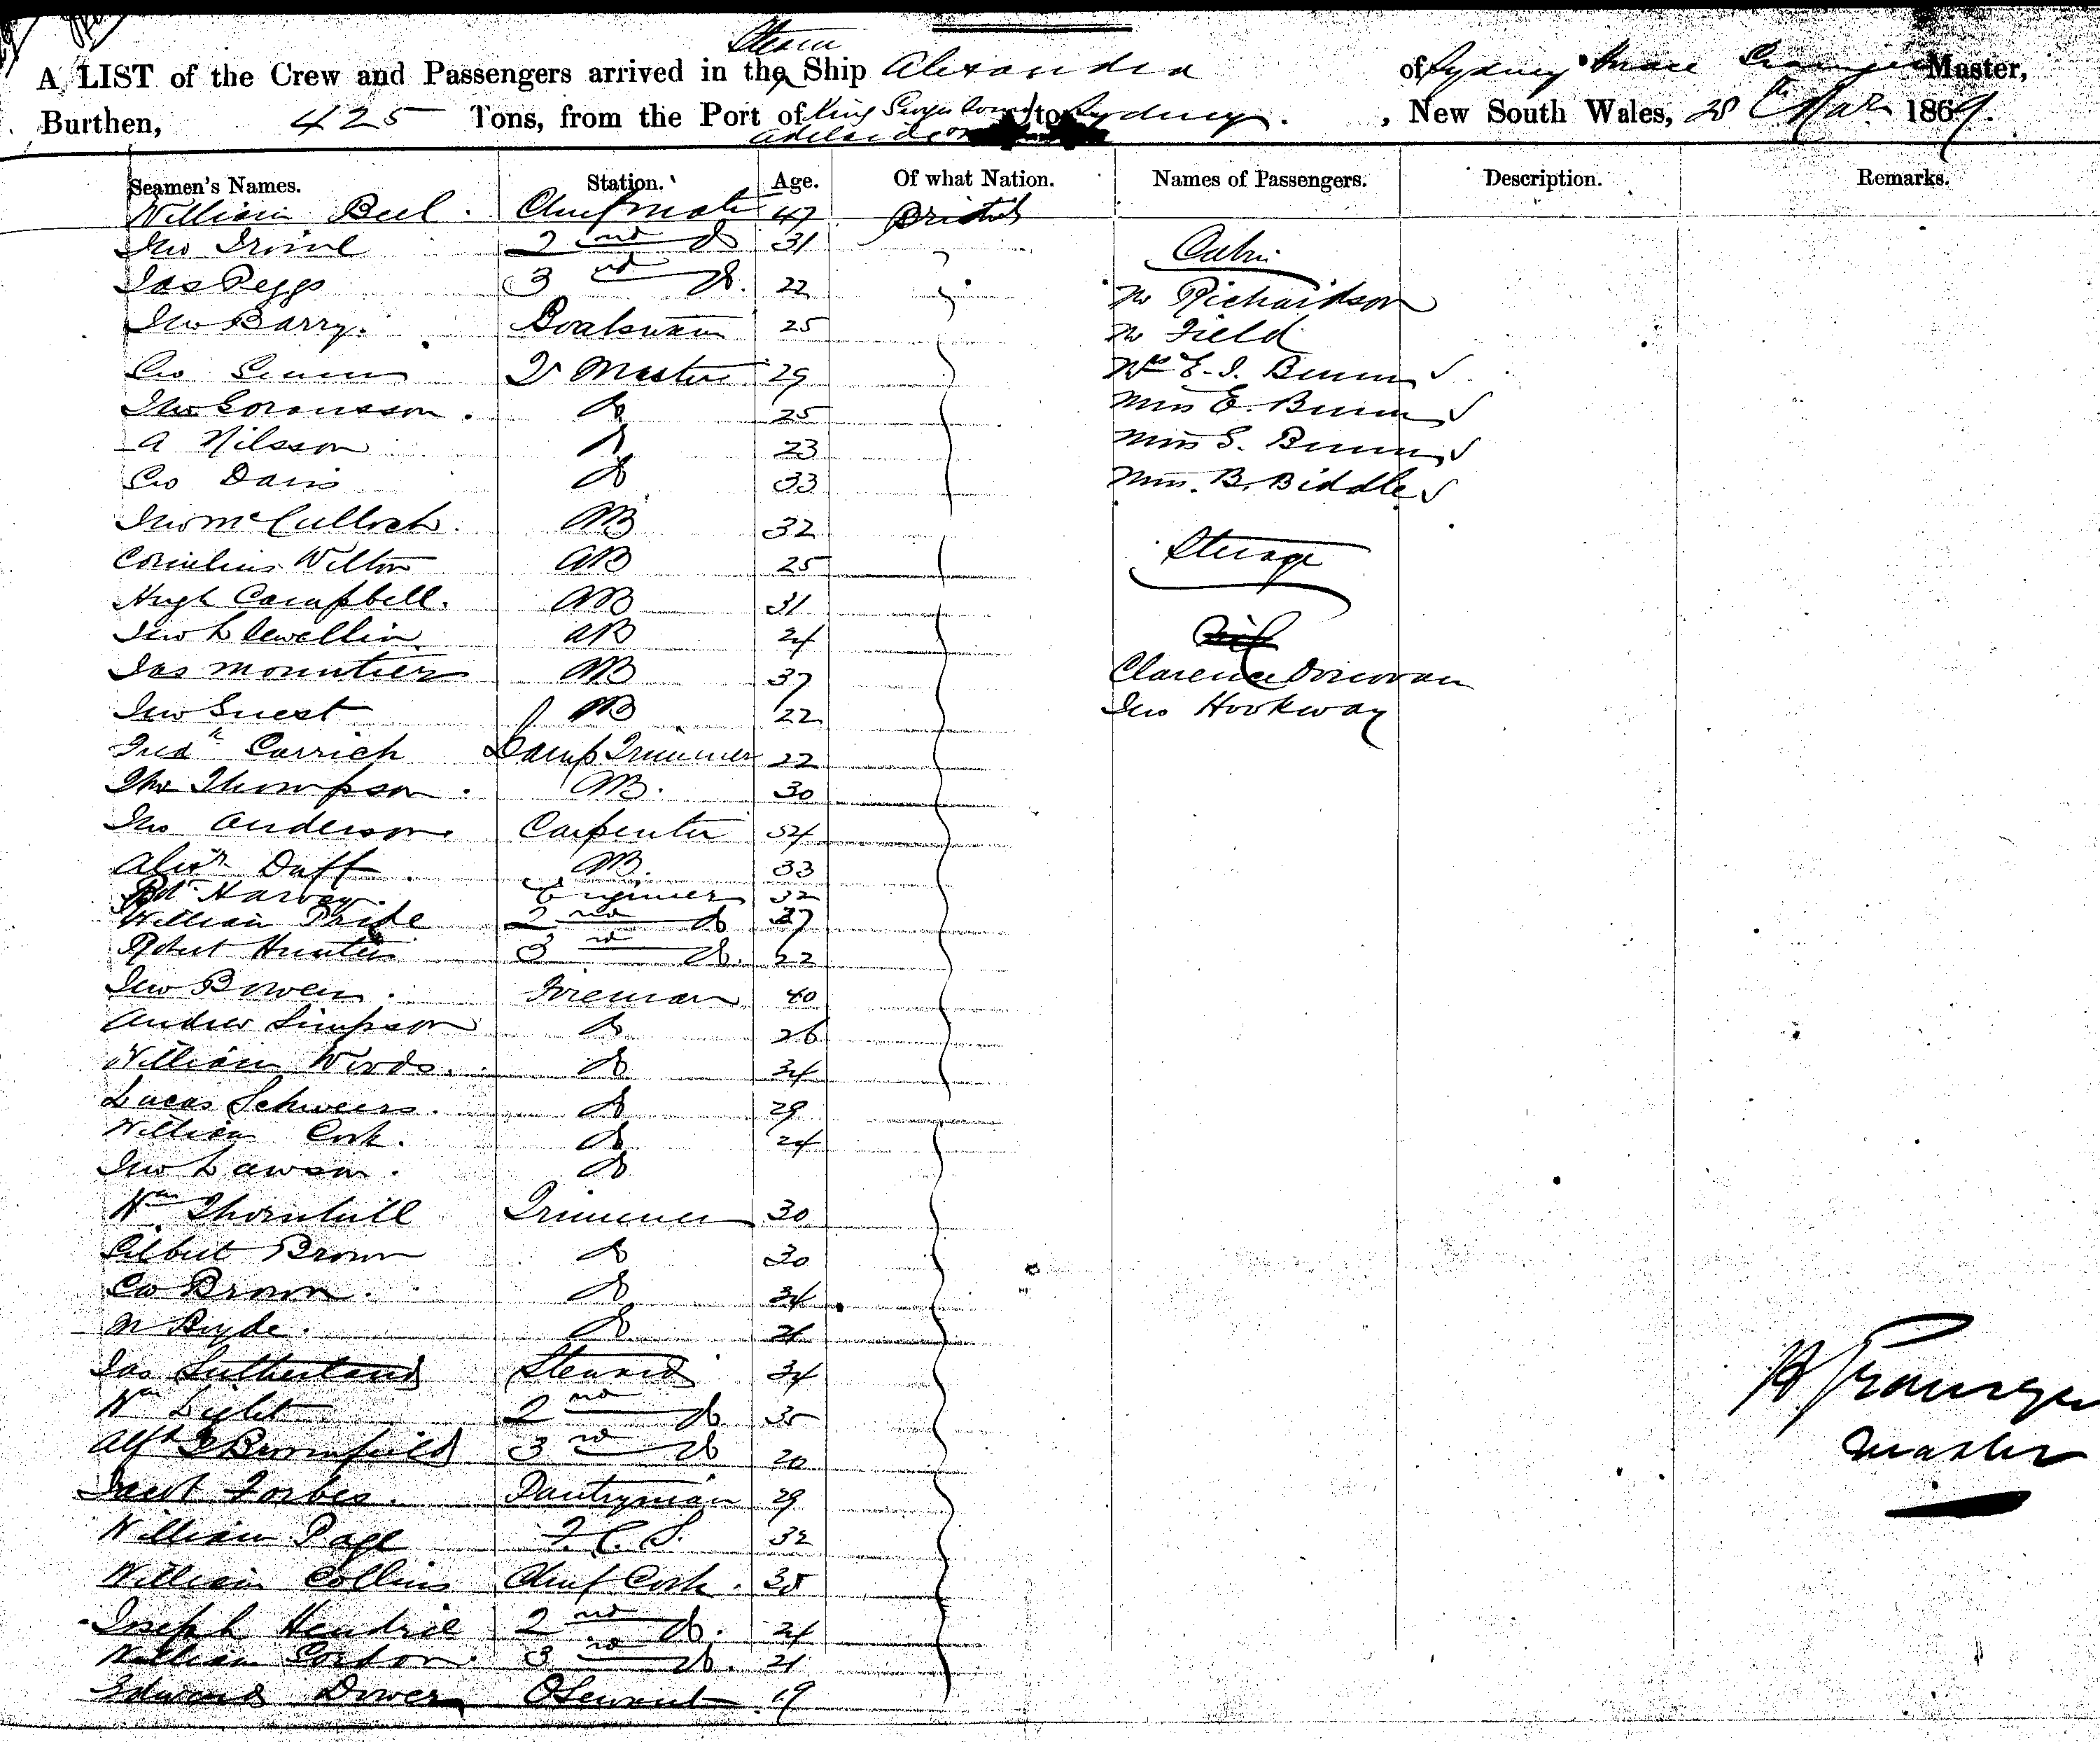 Steam
A LIST of the Crew and Passengers arrived in the Ship Alexandra of Sydney Master,
Burthen, 425 Tons, from the Port of King Georges Sound to Sydney. , New South Wales, 28th Mar 1869.
Adelaide
Seamen's Names. Station. Age. Of what Nation. Names of Passengers. Description. Remarks.
William Bell. Chief mate 47 British
Jno Irvine 2nd do 31
Cabin
Jas Peggs 3rd do. 22
Mr Richardson
Jno Barry. Boatswain 25
Mr Field
Geo Q Master 29
Mrs E. J. Bunn
Jno Goransson. do 25
Miss E. Bunn
A Nilsson do 23
Miss S. Bunn
Geo Davis do 33
Miss. B. Biddle
Jno McCulloch. AB 32
Steerage
Cornelius Wilton AB 25
Hugh Campbell. AB 31
Jno Llewellin AB 24
nil
Jas Mountier AB 37
Clarence Donovan
Jno Guest AB 22
Jno Hookway
Fredk Carrich Lamp Trimmer 22
Thos Thompson. AB. 30
Jno Anderson. Carpenter 54
Alexr Duff. AB. 33
Robt Harvey. Engineer 32
William Pride 2nd do 37
Robert Hunter 3rd do. 22
Jno Bowen. Fireman 40
Andrew Simpson do 26
William Woods. do 34
Lucas Schweers. do 29
William Cook. do 24
Jno Lawson. do
Wm Thornhill Trimmer 30
Gilbert Brown do 30
Geo Brown. do 34
M Ryde. do 24
Jas Sutherland Steward 34
Wm Light 2nd do 35
Alfd Bromfield 3rd do 20
Jacob Forbes. Pantryman 29
William Page F. C. S. 32
William Collins Chief Cook. 35
Joseph Hendrie 2nd do. 24
William Gordon 3rd do. 21
Edward Dower O Servant 19
H Grainger
Master